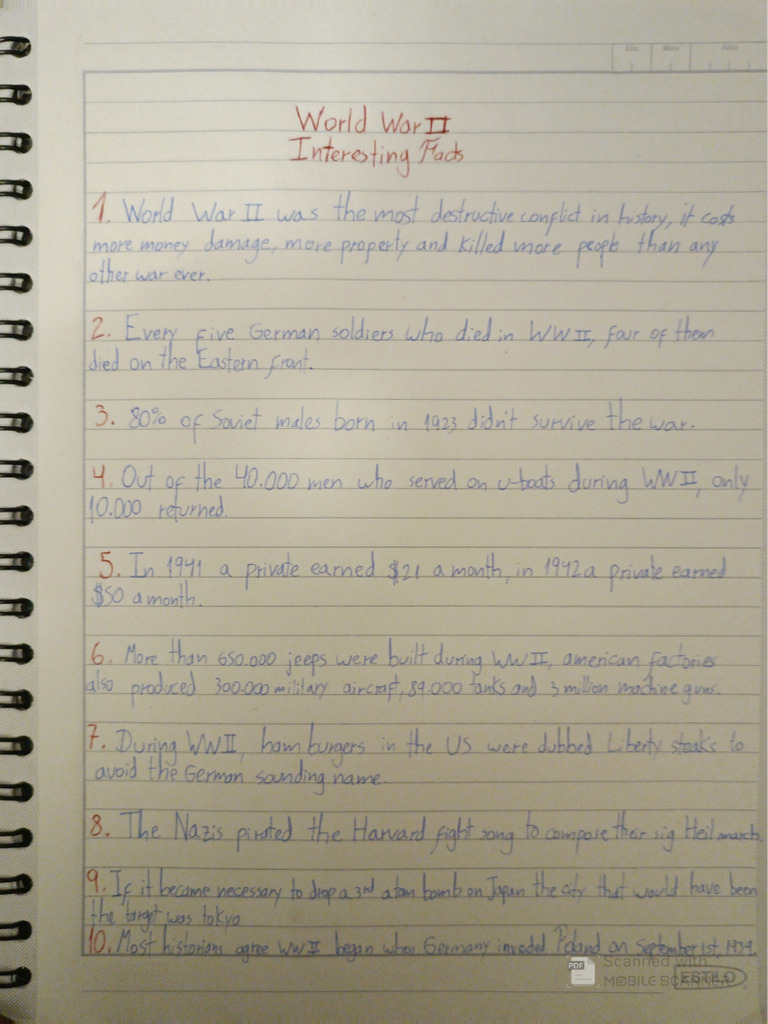 Día Mes Año
World War II
Interesting Facts
1. World War II was the most destructive conflict in history, it costs
more money damage, more property and killed more people than any
other war ever.
2. Every five German soldiers who died in WWII, four of them
died on the Eastern front.
3. 80% of Soviet males born in 1923 didn't survive the war.
4. Out of the 40.000 men who served on u-boats during WWII, only
10.000 returned.
5. In 1941 a private earned $21 a month, in 1942 a private earned
$50 a month.
6. More than 650.000 jeeps were built during WWII, american factories
also produced 300.000 military aircraft, 89.000 tanks and 3 million machine guns.
7. During WWII, hamburgers in the US were dubbed Liberty steaks to
avoid the German sounding name.
8. The Nazis pirated the Harvard fight song to compose their sig Heil march.
9. If it became necessary to drop a 3rd atom bomb on Japan the city that would have been
the target was tokyo
10. Most historians agree WWII began when Germany invaded Poland on September 1st, 1939.
PDF Scanned with
MOBILE SCANNER
ESTILO